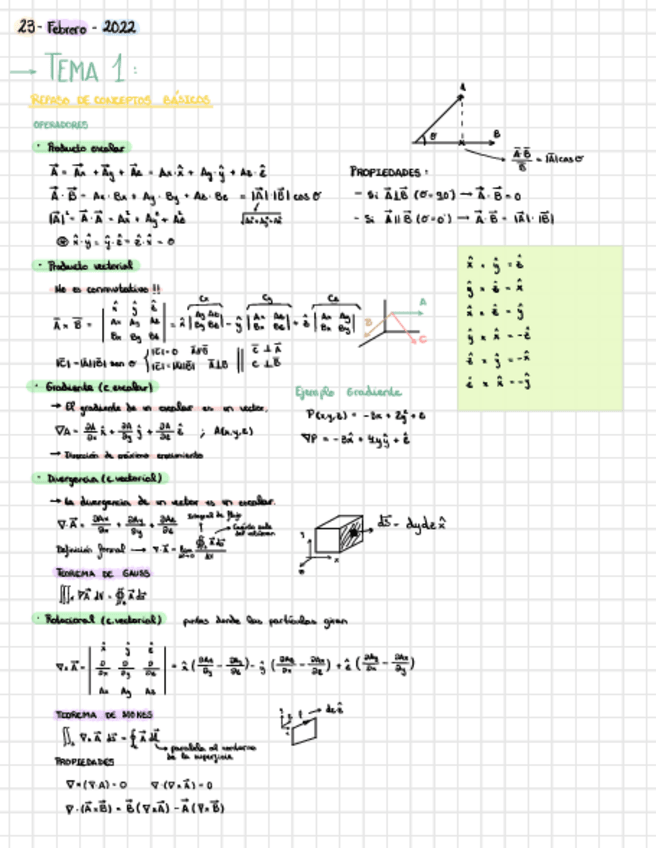 23 - Febrero - 2022
→ TEMA 1:
REPASO DE CONCEPTOS BÁSICOS
OPERADORES
· Producto escalar
A⃗ = A⃗x + A⃗y + A⃗z = Ax·x̂ + Ay·ŷ + Az·ẑ
A⃗ · B⃗ = Ax·Bx + Ay·By + Az·Bz = |A⃗|·|B⃗| cos θ
|A⃗|² = A⃗·A⃗ = Ax² + Ay² + Az²
√Ax²+Ay²+Az²
x̂·ŷ = ŷ·ẑ = ẑ·x̂ = 0
A
θ
B
A⃗·B⃗ / B = |A⃗| cos θ
PROPIEDADES:
- Si A⃗⊥B⃗ (θ=90°) → A⃗·B⃗ = 0
- Si A⃗∥B⃗ (θ=0°) → A⃗·B⃗ = |A⃗|·|B⃗|
· Producto vectorial
No es conmutativo !!
Cx Cy Cz
A⃗ × B⃗ = |x̂ ŷ ẑ; Ax Ay Az; Bx By Bz| = x̂ |Ay Az; By Bz| - ŷ |Ax Az; Bx Bz| + ẑ |Ax Ay; Bx By|
A
B
C
|C⃗| = |A⃗||B⃗| sen θ { |C⃗|=0 A⃗∥B⃗; |C⃗|=|A⃗||B⃗| A⃗⊥B⃗ || C⃗ ⊥ A⃗; C⃗ ⊥ B⃗
x̂ × ŷ = ẑ
ŷ × ẑ = x̂
x̂ × ẑ = ŷ
ŷ × x̂ = -ẑ
ẑ × ŷ = -x̂
ẑ × x̂ = -ŷ
· Gradiente (c. escalar)
→ El gradiente de un escalar es un vector.
∇A = ∂A/∂x x̂ + ∂A/∂y ŷ + ∂A/∂z ẑ ; A(x,y,z)
→ Dirección de máximo crecimiento
Ejemplo Gradiente
P(x,y,z) = -3x + 2y² + z
∇P = -3x̂ + 4yŷ + ẑ
· Divergencia (c. vectorial)
→ La divergencia de un vector es un escalar.
∇·A⃗ = ∂Ax/∂x + ∂Ay/∂y + ∂Az/∂z
Integral de flujo
Cuánto sale del volumen
Definición formal → ∇·A⃗ = lim ∮ A⃗ ds⃗ / ΔV
ds⃗ = dydz x̂
TEOREMA DE GAUSS
∭ ∇A⃗ dV = ∮ A⃗ ds⃗
· Rotacional (c. vectorial) puntos donde las partículas giran
∇×A⃗ = |x̂ ŷ ẑ; ∂/∂x ∂/∂y ∂/∂z; Ax Ay Az| = x̂ (∂Az/∂y - ∂Ay/∂z) - ŷ (∂Az/∂x - ∂Ax/∂z) + ẑ (∂Ay/∂x - ∂Ax/∂y)
TEOREMA DE STOKES
∬ ∇×A⃗ ds⃗ = ∮ A⃗ dl⃗
→ paralela al contorno
de la superficie
PROPIEDADES
∇×(∇·A) = 0 ∇·(∇×A⃗) = 0
∇·(A⃗×B⃗) = B⃗(∇×A⃗) - A⃗(∇×B⃗)